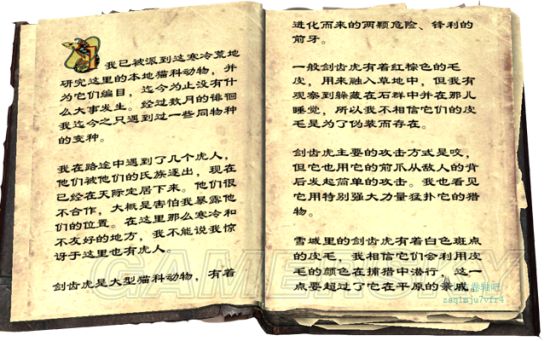 我已被派到这寒冷荒地
研究这里的本地猫科动物，并
为它们编目，迄今为止没有什
么大事发生。经过数月的徘徊
我迄今之只遇到过一些同物种
的变种。
我在路途中遇到了几个虎人，
他们被他们的氏族逐出，现在
已经在天际定居下来。他们很
不合作，大概是害怕我暴露他
们的位置。在这里那么寒冷和
不友好的地方，我不能说我惊
讶于这里也有虎人
剑齿虎是大型猫科动物，有着
进化而来的两颗危险、锋利的
前牙。
一般剑齿虎有着红棕色的毛
皮，用来融入草地中，但我有
观察到躲藏在石群中并在那儿
睡觉，所以我不相信它们的皮
毛是为了伪装而存在。
剑齿虎主要的攻击方式是咬，
但它也用它的前爪从敌人的背
后发起简单的攻击。我也看见
它用特别强大力量猛扑它的猎
物。
雪城里的剑齿虎有着白色斑点
的皮毛，我相信它们会利用皮
毛的颜色在捕猎中潜行，这一
点要超过了它在平原的亲戚。
zaqimju7vfr4
GAMERSKY